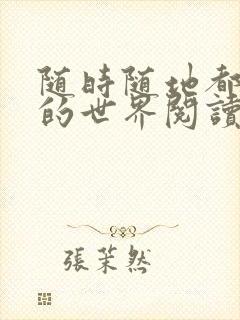 随時随地都
的世界閱讀
張茉然